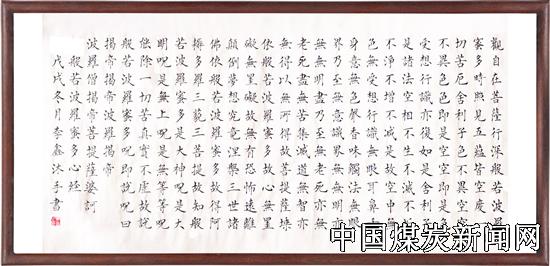 觀自在菩薩行深般若波羅
蜜多時照見五蘊皆空度一
切苦厄舍利子色不異空空
不異色色即是空空即是色
受想行識亦復如是舍利子
是諸法空相不生不滅不垢
不淨不增不減是故空中無
色無受想行識無眼耳鼻舌
身意無色聲香味觸法無眼
界乃至無意識界無無明亦
無無明盡乃至無老死亦無
老死盡無苦集滅道無智亦
無得以無所得故菩提薩埵
依般若波羅蜜多故心無罣
礙無罣礙故無有恐怖遠離
顛倒夢想究竟涅槃三世諸
佛依般若波羅蜜多故得阿
耨多羅三藐三菩提故知般
若波羅蜜多是大神呪是大
明呪是無上呪是無等等呪
能除一切苦真實不虛故說
般若波羅蜜多呪即說呪曰
揭帝揭帝般羅揭帝
波羅僧揭帝菩提薩婆訶
般若波羅蜜多心經
戊戌冬月李鑫沐手書
中国煤炭新闻网